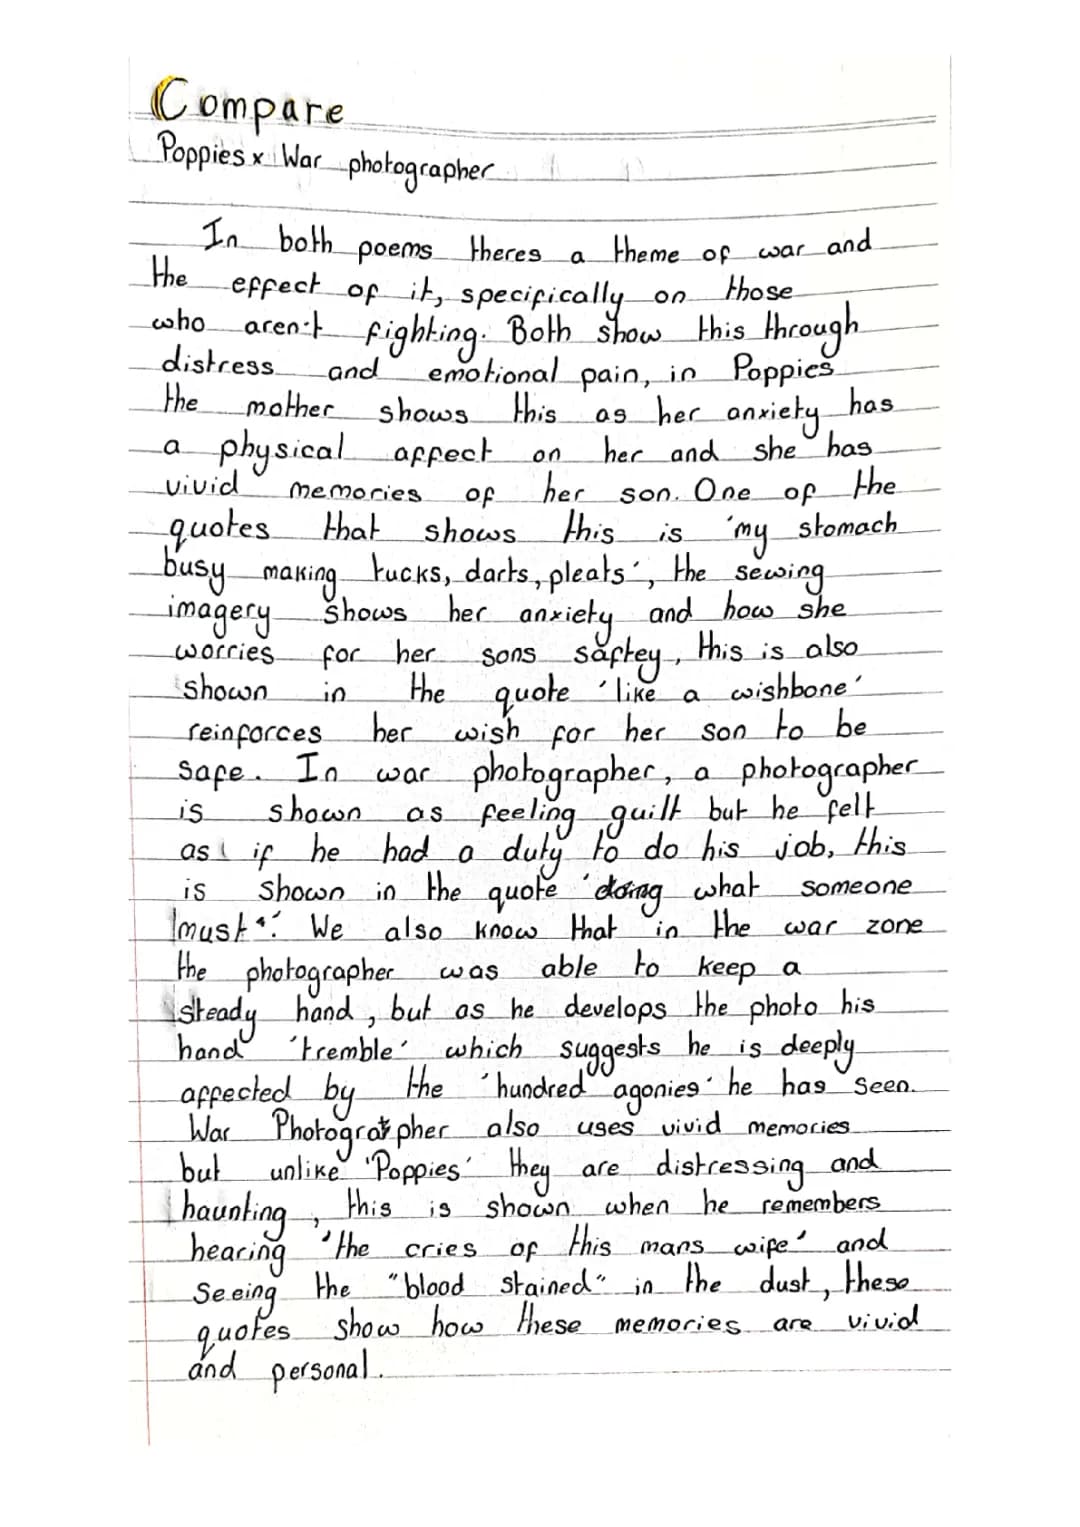 Compare
Poppies x War photographer
In both poems theres a theme of war and
the effect of it, specifically on those
who aren't fighting. Both show this through
distress and emotional pain, in Poppies
the mother shows this as her anxiety has
a physical affect on her and she has
vivid memories of her son. One of the
quotes that shows this is 'my stomach
busy making tucks, darts, pleats', the sewing
imagery shows her anxiety and how she
worries for her sons saftey, this is also
shown in the quote 'like a wishbone'
reinforces her wish for her son to be
safe. In war photographer, a photographer
is shown as feeling guilt but he felt
as if he had a duty to do his job, this
is shown in the quote 'doing what someone
must'. We also know that in the war zone
the photographer was able to keep a
steady hand, but as he develops the photo his
hand 'tremble' which suggests he is deeply
affected by the 'hundred agonies' he has seen.
War Photographer also uses vivid memories
but unlike 'Poppies' they are distressing and
haunting, this is shown when he remembers
hearing 'the cries of this mans wife' and
Seeing the "blood stained" in the dust, these
quotes show how these memories are vivid
and personal.